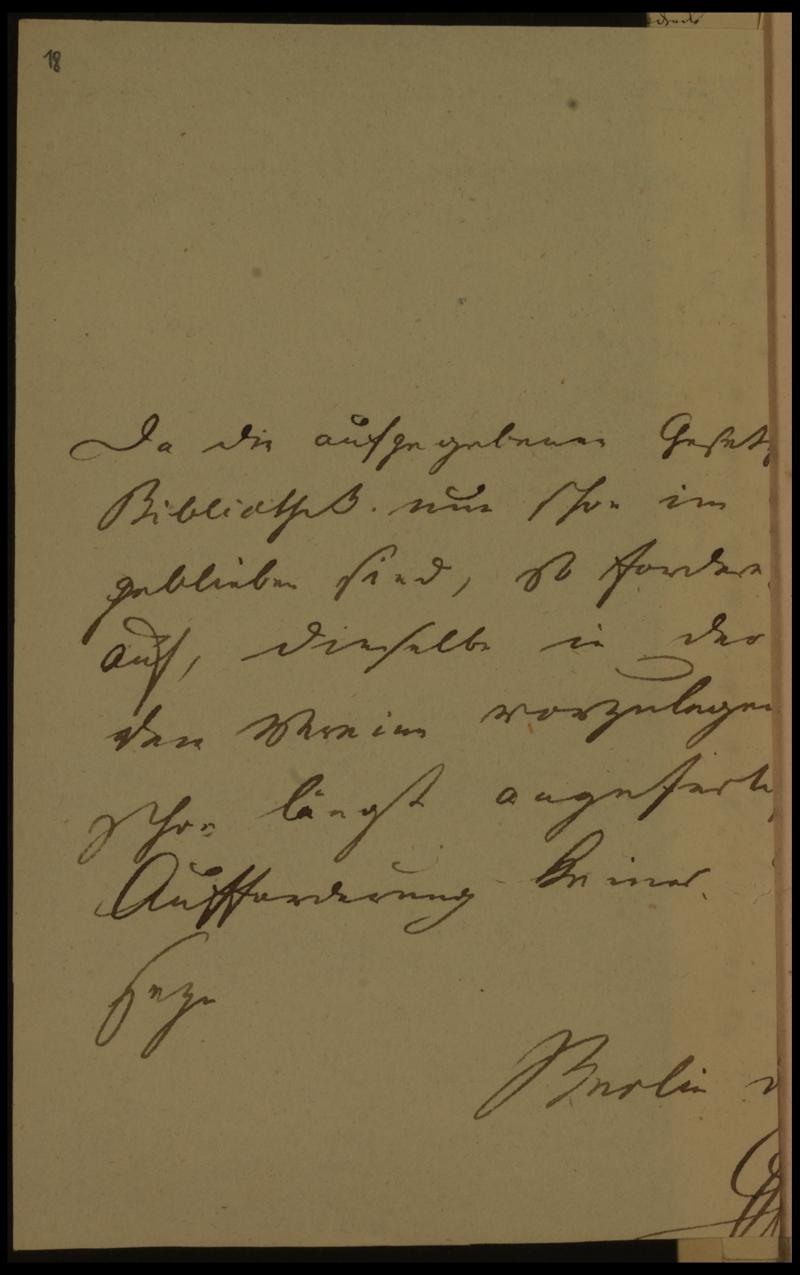 18
Da die aufgegebenen Gesetz
Bibliothek nun schon im
geblieben sind, so fordere
auf, dieselbe in der
den Verein vorzulegen
schon längst angeferti
Aufforderung keiner
Berlin d